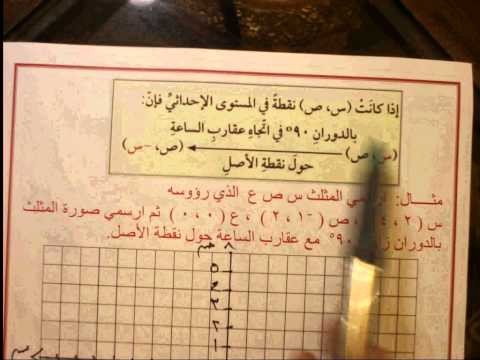 إذا كانَتْ (س، ص) نقطةً في المستوى الإحداثيِّ فإنّ:
بالدورانِ ٩٠° في اتّجاهِ عقاربِ الساعةِ
(س، ص) (ص، -س)
حولَ نقطةِ الأصلِ
مثـــال: ارسمي المثلث س ص ع الذي رؤوسه
س ( ٢ ، ، ص ( -١ ، ٢ ) ، ع ( ٠ ، ٠ ) ثم ارسمي صورة المثلث
بالدوران ٩٠° مع عقارب الساعة حول نقطة الأصل.
ص
٥
٤
٣
٢
١
س